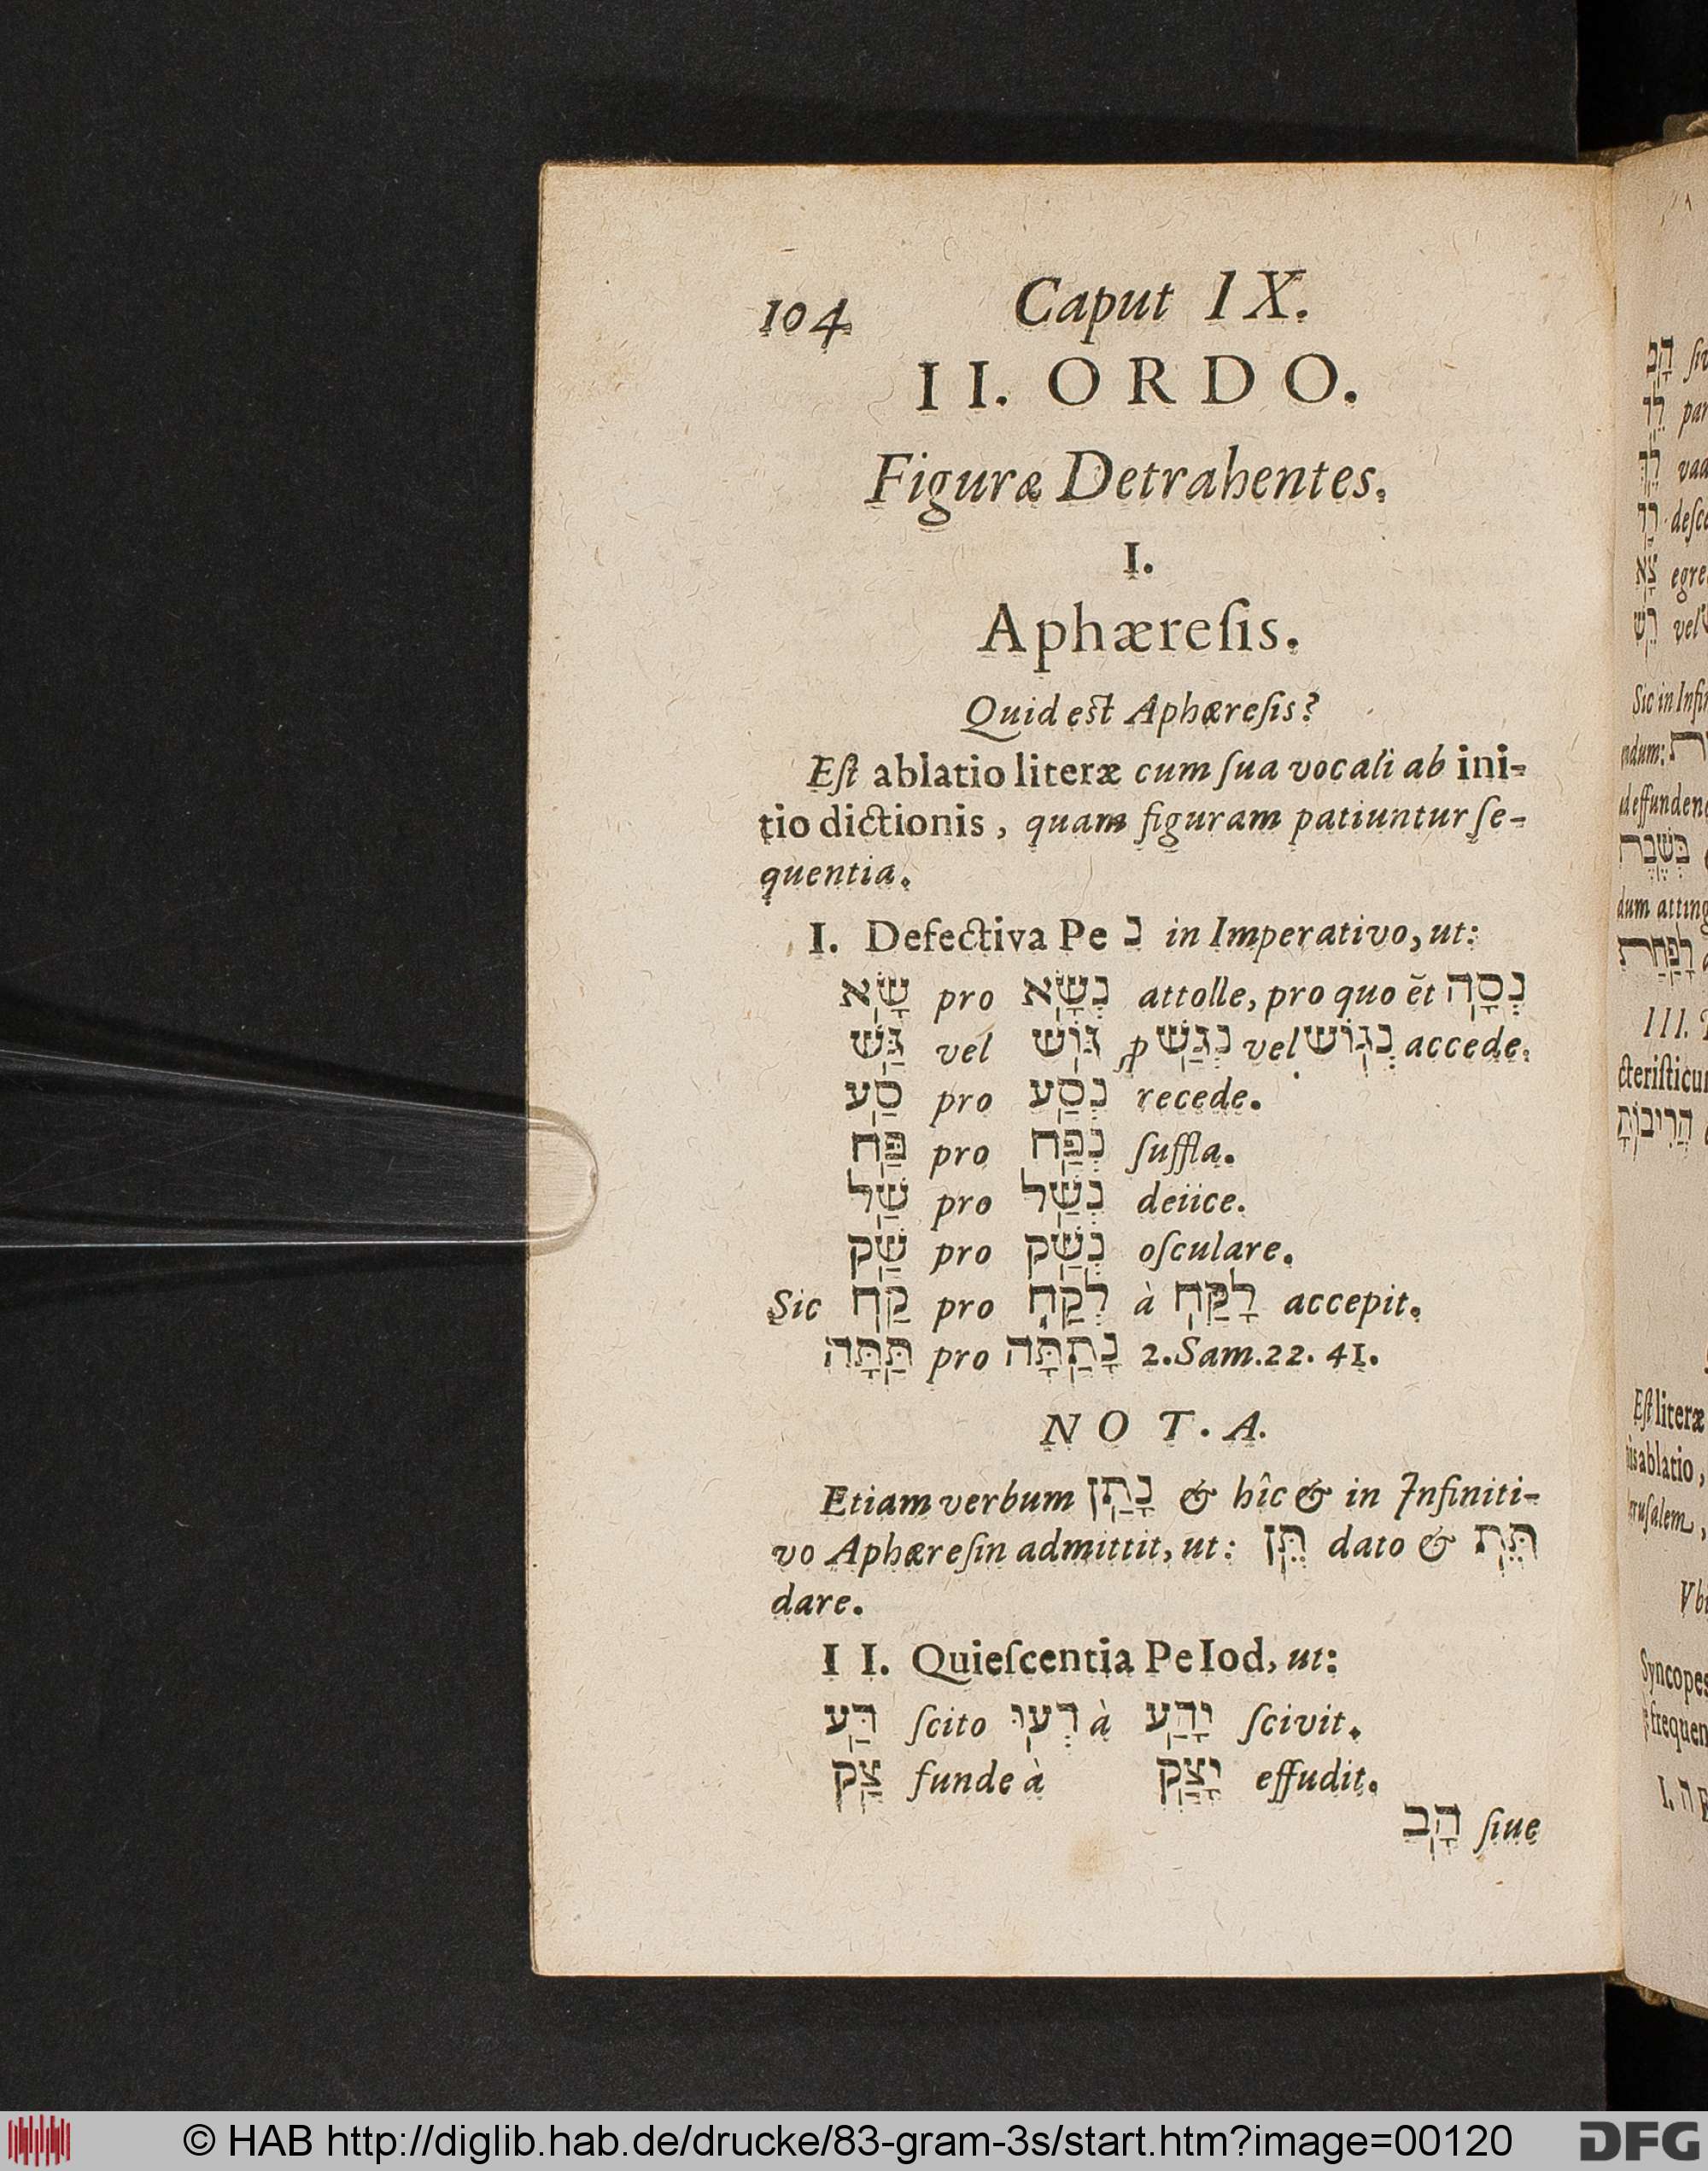 104 Caput IX.
II. ORDO.
Figuræ Detrahentes.
I.
Aphæreſis.
Quid est Aphæreſis?
Eſt ablatio literæ cum ſua vocali ab ini-
tio dictionis, quam figuram patiuntur ſe-
quentia.
I. Defectiva Pe נ in Imperativo, ut:
שָׂא pro נְשָׂא attolle, pro quo ẽt נְסָה
גַּשׁ vel גּוֹשׁ ꝓ נְגַשׁ vel נְגוֹשׁ accede.
סַע pro נְסַע recede.
פַּח pro נְפַּח ſuffla.
שַׁל pro נְשַׁל deiice.
שַׁק pro נְשַׁק oſculare.
Sic קַח pro לְקַח à לָקַח accepit.
תַּתָּה pro נָתַתָּה 2. Sam. 22. 41.
NOT. A.
Etiam verbum נָתַן & hîc & in Infiniti-
vo Aphæreſin admittit, ut: תֵּן dato & תֵּת
dare.
II. Quieſcentia Pe Iod, ut:
דַּע ſcito דְעוּ à יָדַע ſcivit.
צַק funde à יָצַק effudit.
הָב ſiue
הָב
par
deſce
vel
Sic in Infi
III.
Eſt literæ
ablatio,
Syncopes
© HAB http://diglib.hab.de/drucke/83-gram-3s/start.htm?image=00120
DFG